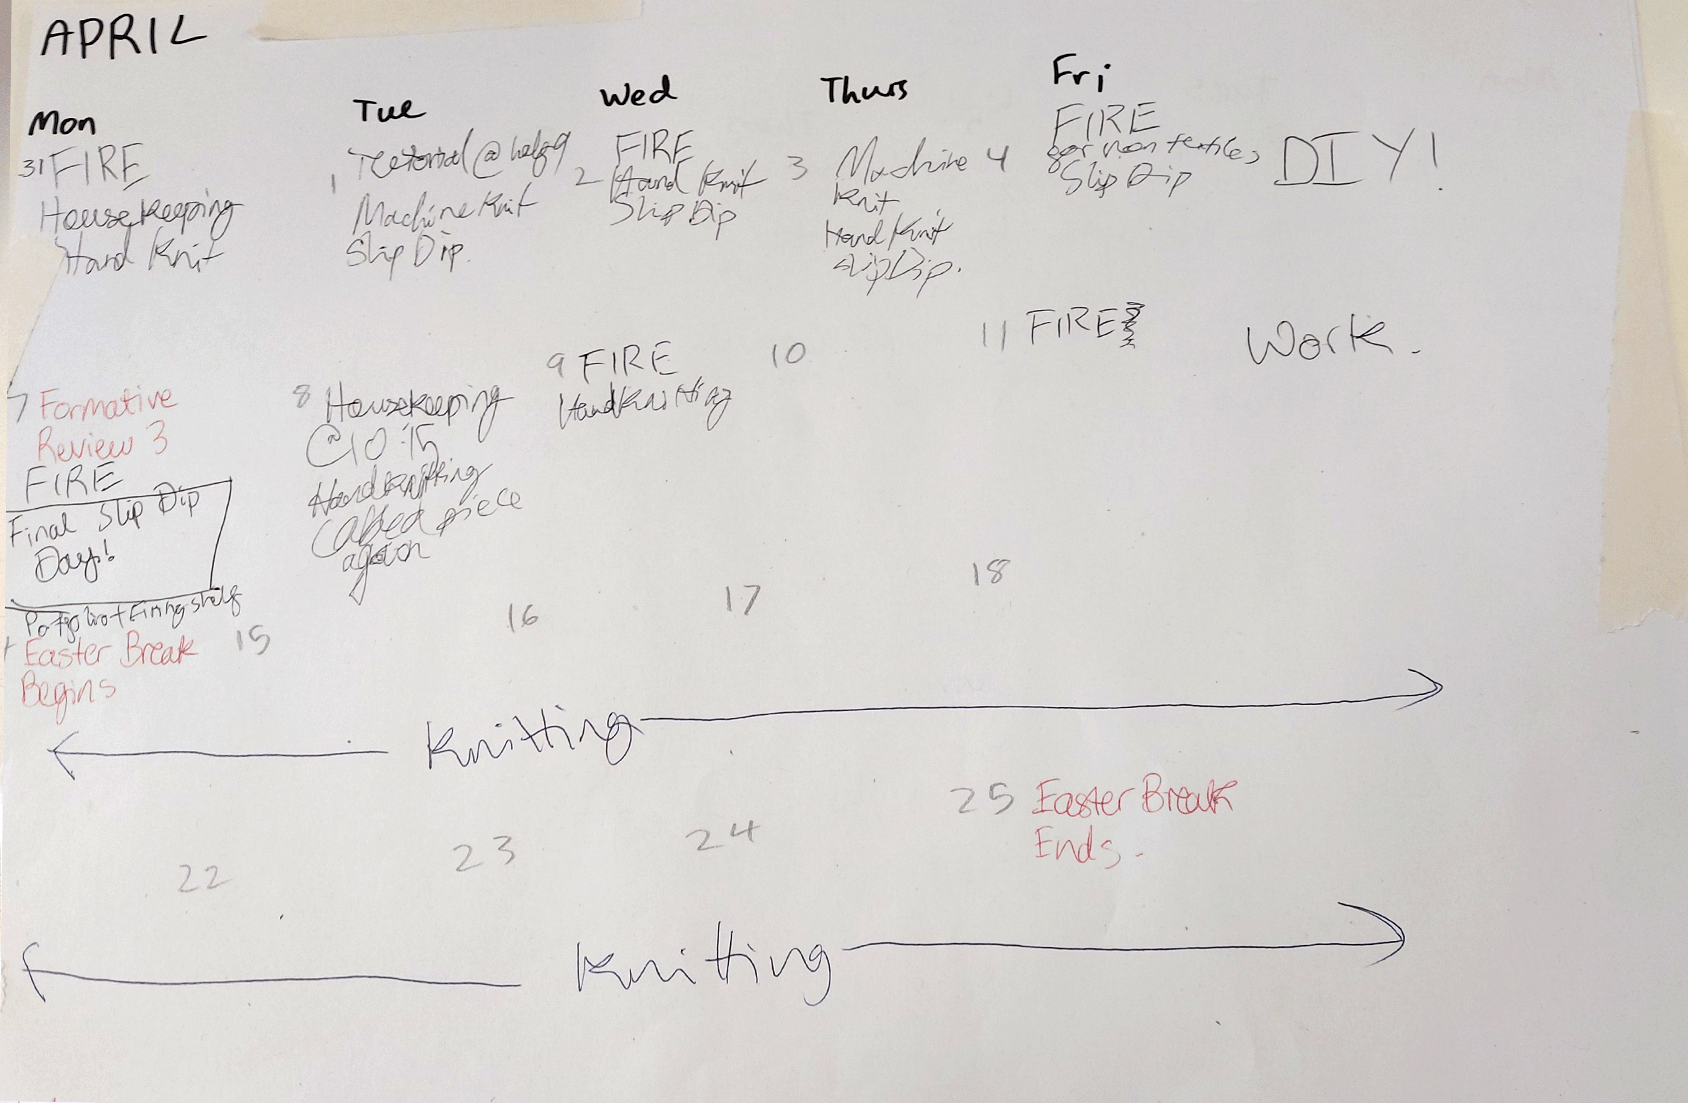 APRIL
Mon
Tue
Wed
Thurs
Fri
31 FIRE
Housekeeping
Hand Knit
1 Tutorial @ half 9
Machine Knit
Slip Dip.
2 FIRE
Hand Knit
Slip Dip
3 Machine
Knit
Hand Knit
Slip Dip.
4 FIRE
for non textiles
Slip Dip
DIY!
7 Formative
Review 3
FIRE
Final Slip Dip
Day!
firing shelf
8 Housekeeping
@10:15
Handknitting
Cabled piece
again
9 FIRE
Handknitting
10
11 FIRE
Work.
Easter Break
Begins
15
16
17
18
Knitting
22
23
24
25 Easter Break
Ends.
Knitting